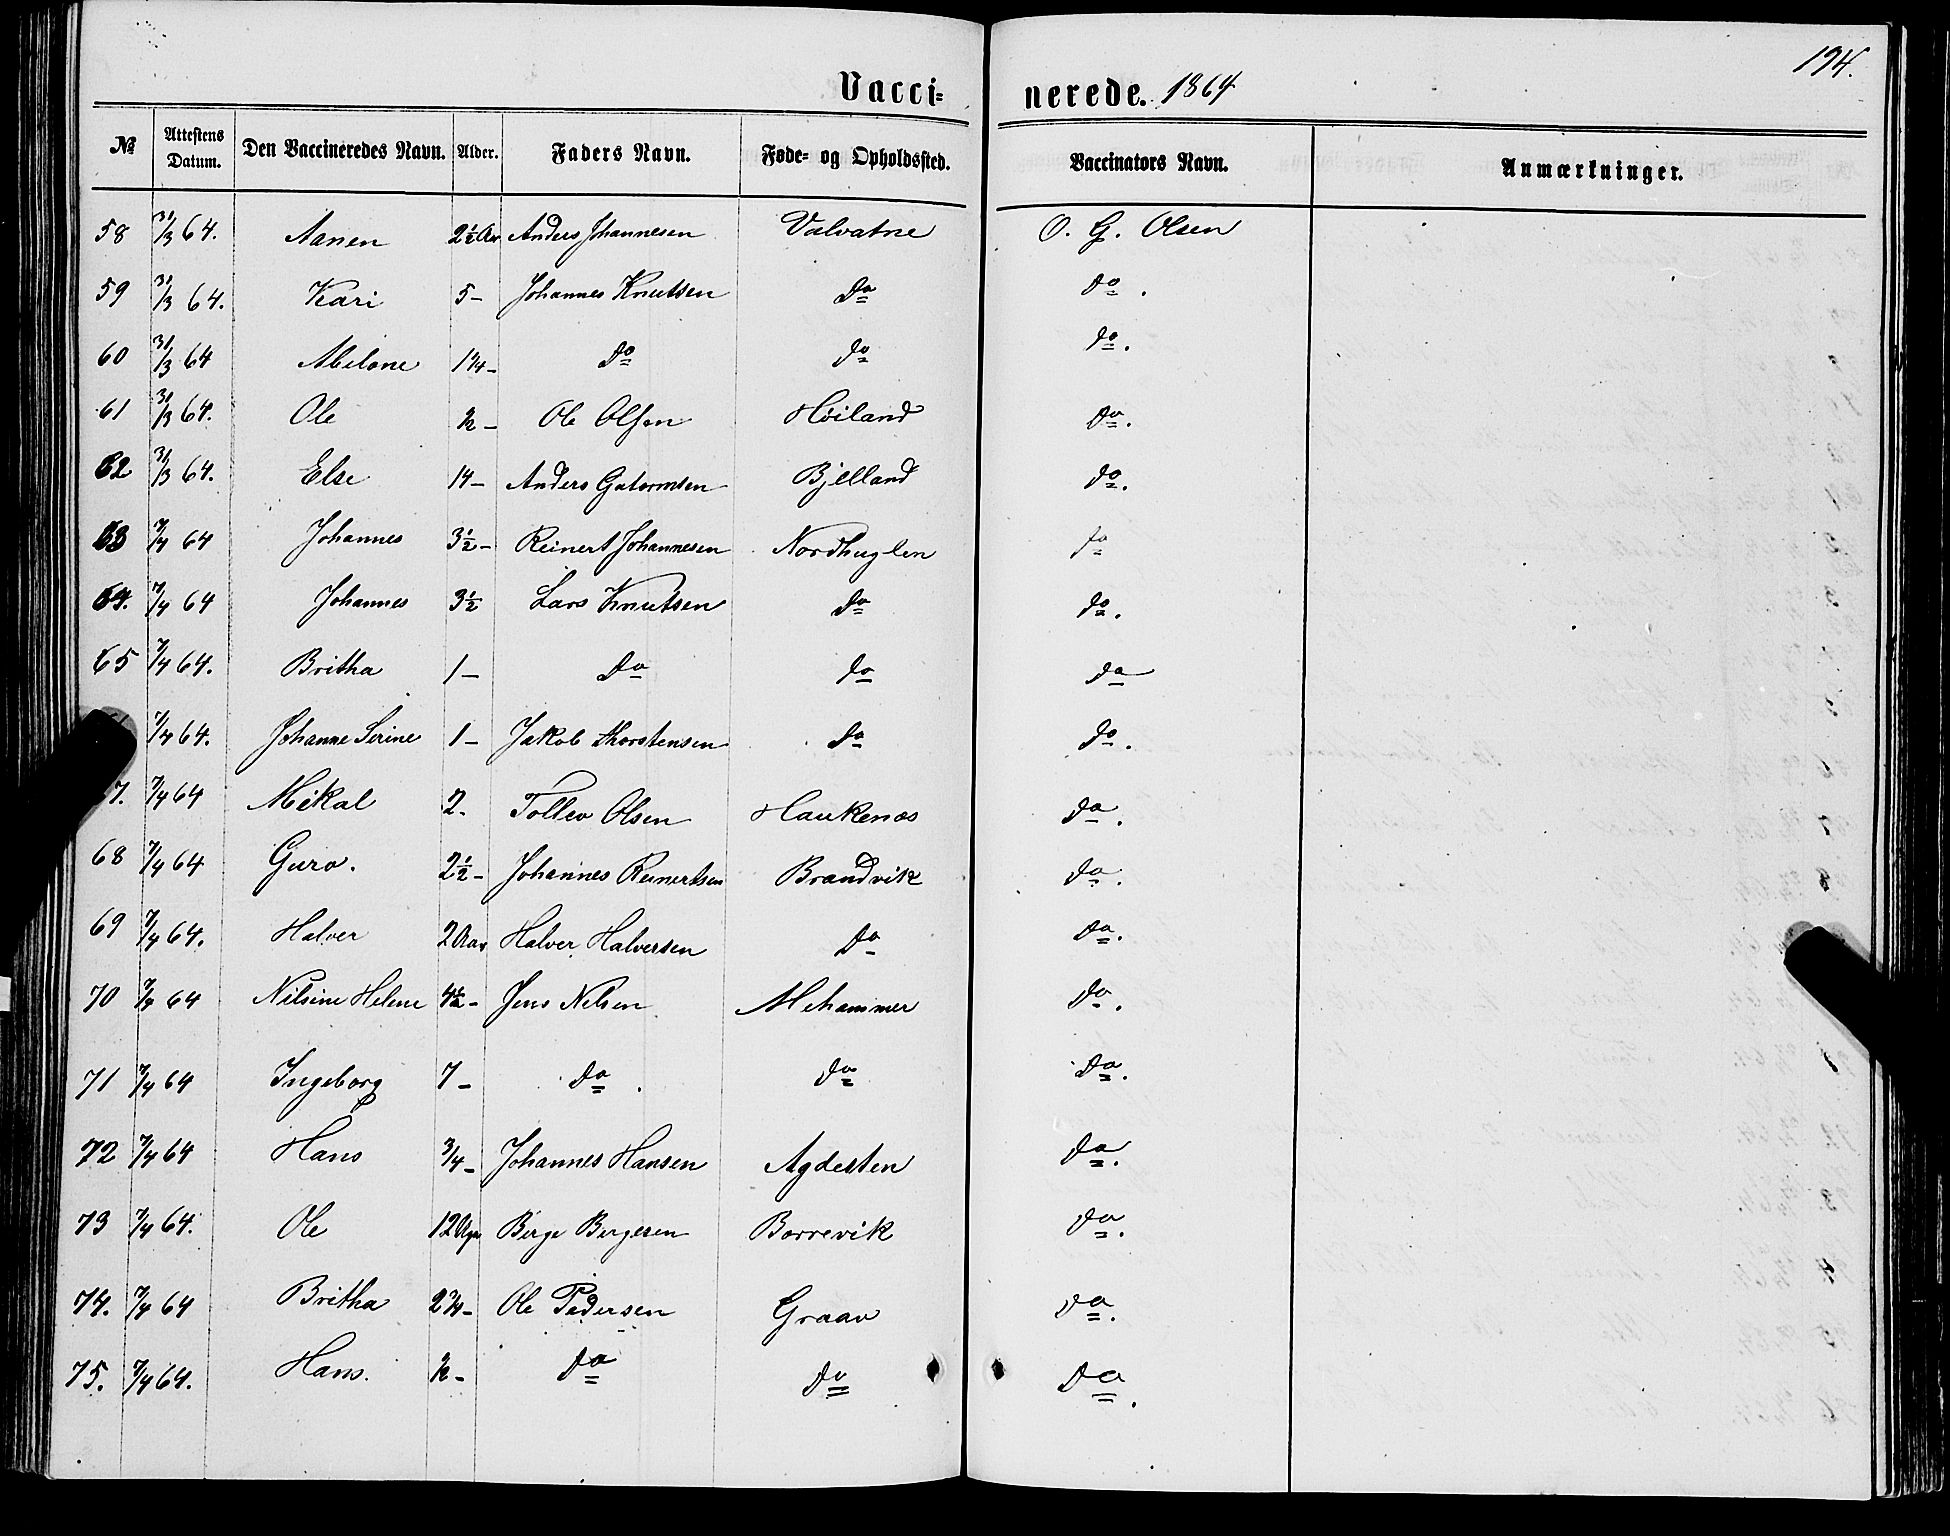 194.
Vacci= nerede. 1864
№ Attestens Datum. Den Vaccineredes Navn. Alder. Faders Navn. Føde= og Opholdssted. Vaccinators Navn. Anmærkninger.
58 31/3 64. Aanen 2½ Aar Anders Johannesen Valvatne O. G. Olsen
59 31/3 64. Kari 5 - Johannes Knutsen do do.
60 31/3 64 Abelone 1¼ - do do do.
61 31/3 64. Ole ½ - Ole Olsen Høiland do.
62 31/3 64. Else 14 - Anders Gutormsen Bjelland do.
63 7/4 64 Johannes 3½ - Reinert Johannesen Nordhuglen do
64. 7/4 64 Johannes 3½ Lars Knutsen do do.
65 7/4 64. Britha 1 - do do do
7/4 64. Johanne Serine 1 - Jakob Thorstensen do do.
7. 7/4 64 Mikal 2. Tollev Olsen Haukenæs do.
68 7/4 64 Guro. 2½ - Johannes Reinertsen Brandvik do.
69 7/4 64. Halver 2 Aar Halver Halversen do do.
70 7/4 64 Nilsine Helene 4½ - Jens Nelsen Mehammer do.
71 7/4 64 Ingeborg 7 - do. do do.
72 7/4 64 Hans 3/4 - Johannes Hansen Agdesten do.
73 7/4 64. Ole 12 Berge Bergesen Borrevik do.
74. 7/4 64 Britha 2¾ - Ole Pedersen Graav do.
75. 7/4 64. Hans. ½ - do do do.